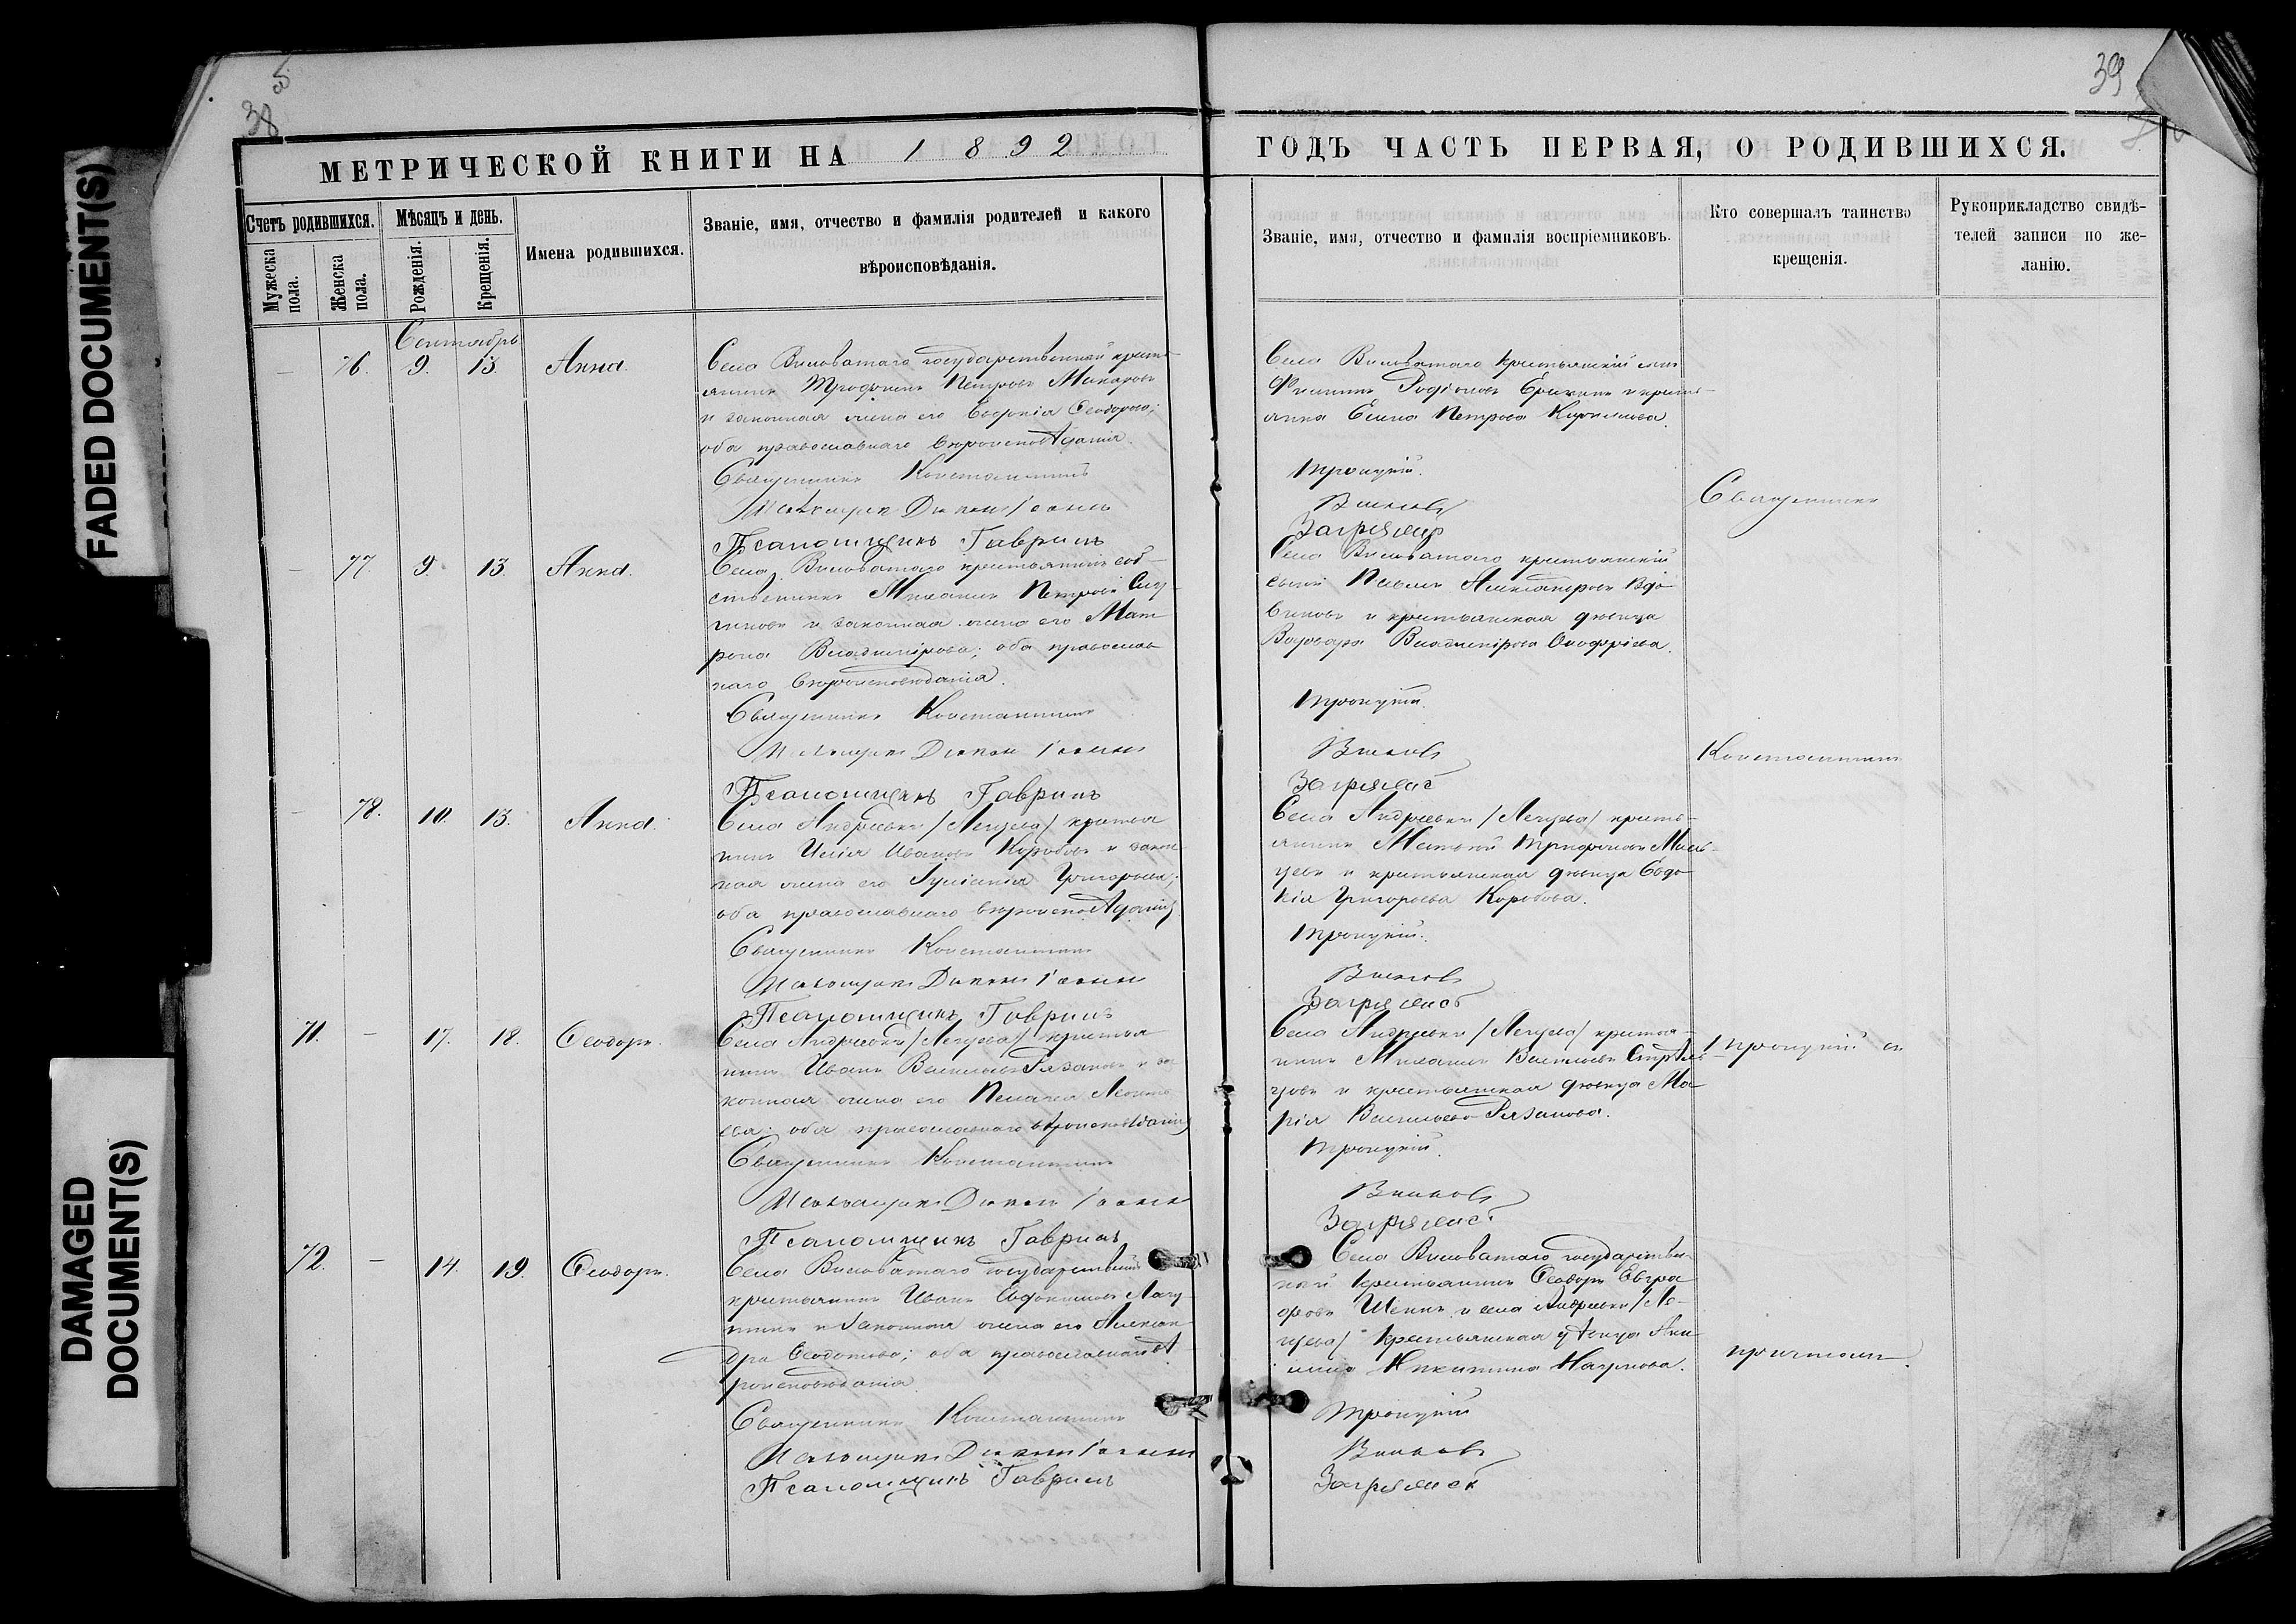 FADED DOCUMENT(S)
DAMAGED
DOCUMENT(S)
38
39
МЕТРИЧЕСКОЙ КНИГИ НА 1892
ГОДЪ ЧАСТЬ ПЕРВАЯ, О РОДИВШИХСЯ.
Счетъ родившихся.
Мужеска пола.
Женска пола.
Мѣсяцъ и день.
Рожденія.
Крещенія.
Имена родившихся.
Званіе, имя, отчество и фамилія родителей и какого
вѣроисповѣданія.
Званіе, имя, отчество и фамилія воспріемниковъ.
Кто совершалъ таинство
крещенія.
Рукоприкладство свидѣ-
телей записи по же-
ланію.
Сентябрь
— 76. 9. 13. Анна.
Села Виловатаго государственный кресть-
янинъ Трофимъ Петровъ Макаровъ
и законная жена его Евгенія Ѳеодорова;
оба православнаго вѣроисповѣданія.
Священникъ Константинъ
Діаконъ Іоаннъ
Псаломщикъ Гавриилъ
Села Виловатаго крестьянскій сынъ
Филиппъ Родіоновъ и кресть-
янка Елена Петрова Кириллова.
Троицкій.
Загрянск
— 77. 9. 13. Анна.
Села Виловатаго крестьянинъ соб-
ственникъ Михаилъ Петровъ
и законная жена его Мат
рона Владимірова; оба православ
наго вѣроисповѣданія.
Священникъ Константинъ
Діаконъ Іоаннъ
Псаломщикъ Гавриилъ
Села Виловатаго крестьянскій
сынъ Павелъ Александровъ Вдо
виновъ и крестьянская дѣвица
Варвара Владимірова Онофріева.
Троицкій.
— 78. 10. 13. Анна.
Села Андреевки /Лещева/ крестья
нинъ Илія Ивановъ Коробовъ и закон
ная жена его Іуліанія Григорьева;
оба православнаго вѣроисповѣданія
Священникъ Константинъ
Діаконъ Іоаннъ
Псаломщикъ Гавриилъ
Села Андреевки /Лещева/ кресть-
янинъ Матвей Трифоновъ Маль-
цевъ и крестьянская дѣвица Евдо
кія Григорьева Коробова.
Троицкій.
71. — 17. 18. Ѳеодоръ.
Села Андреевки /Лещева/ крестья
нинъ Иванъ Васильевъ Рязановъ и за
конная жена его Пелагея Леонть
ева; оба православнаго вѣроисповѣданія
Священникъ Константинъ
Діаконъ Іоаннъ
Псаломщикъ Гавриилъ
Села Андреевки /Лещева/ крестья-
нинъ Михаилъ Васильевъ Стрѣль
цовъ и крестьянская дѣвица Ма
рія Васильева Рязанова.
Троицкій.
72. — 14. 19. Ѳеодоръ.
Села Виловатаго государственный
крестьянинъ Иванъ Евдокимовъ
и законная жена его Алексан
дра Ѳеодотова; оба православнаго вѣ
роисповѣданія.
Священникъ Константинъ
Діаконъ Іоаннъ
Псаломщикъ Гавриилъ
Села Виловатаго государствен-
ный крестьянинъ Ѳеодоръ Евгра
фовъ и села Андреевки /Ле-
щева/ крестьянская дѣвица Аки
лина Никитина Наумова.
Троицкій
Священникъ
Константинъ
Троицкій съ
причтомъ.